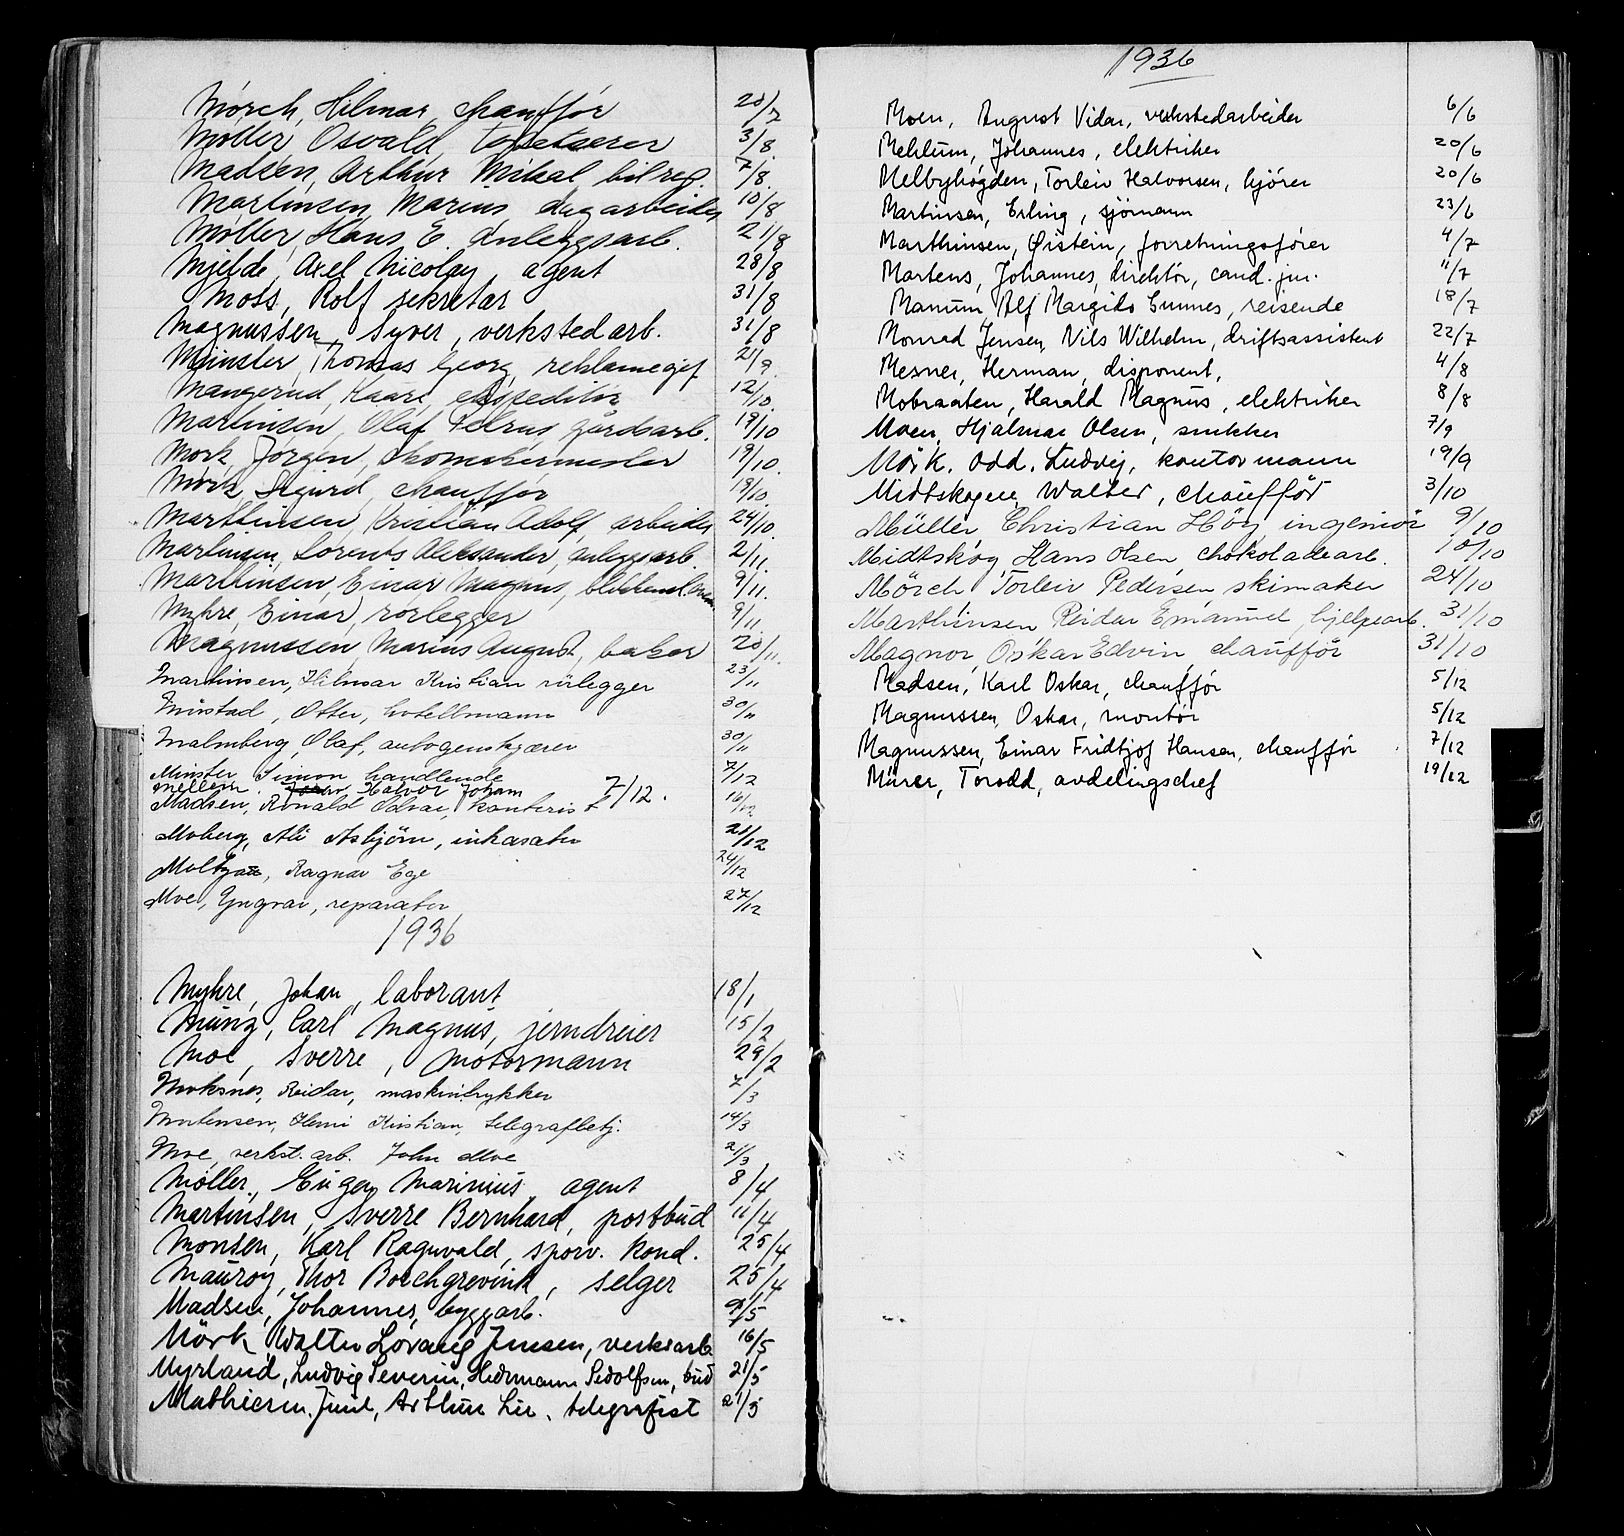 Mörch, Hilmar chauffór 20/7
Møller Osvald, tapetserer 3/8
Madsen, Arthur Mikal, bilrep. 7/8.
Martinsen, Marius, dagarbeider 10/8
Møller, Hans E. anleggsarb. 21/8
Mjelde, Axel Nicolay, agent 28/8
Moss, Rolf sekretær 31/8
Magnussen, Syver, verkstedarb. 31/8
Münster, Thomas Georg, reklamegef 21/9.
Mangerud, Kaare, ekspeditør 12/10.
Martinsen, Olaf Petrus gårdsarb. 19/10
Mork, Jörgen, skomakermester 19/10.
Mörk, Sigurd, chauffór 19/10.
Marthinsen, Kristian Adolf, arbeider 24/10.
Martinsen, Lorents Aleksander, anleggsarb. 2/11.
Marthinsen, Einar Magnus, 9/11.
Myhre, Einar, rorlegger 9/11
Magnussen, Marius August, baker 20/11.
Martinsen, Hilmar Kristian rülegger 23/11
Mörstad, Otter, hotellmann 30/11
Malmberg, Olaf, autogenskjærer 30/11
Minster, Simon handlende 7/12
Mellem. Halvor Johan 7/12.
Madsen, Ronald Odvar, kontorist 16/12
Moberg, Ali Asbjörn, inkasator 21/12
Moltzau, Ragnar Ege 24/12
Moe, Yngvar, reparatør 27/12
1936
Myhre, Johan, laborant 18/1
Münz, Carl Magnus, jerndreier 15/2
Moe, Sverre, motormann 29/2
Moksnes, Reidar, maskintrykker 7/3
Mortensen, Henri Kristian, telegrafbetj. 14/3
Moe, verkst. arb. John Moe 21/3
Møller, Eugen Marinius, agent 8/4
Martinsen, Sverre Bernhard, postbud 11/4
Monsen, Karl Ragnvald, sporv. kond. 25/4
Mauroy, Thor Borchgrevink, selger 25/4
Madsen, Johannes, byggarb. 9/5
Mörk, Walter Lovang Jensen, verksarb 16/5
Myrland, Ludvig Severin, Hedmann Sedolfsen, bud 21/5
Mathiesen, Junl, Arthur Lie. telegrafist 21/5
1936
Moen, August Vidar, verkstedarbeider 6/6
Mehlum, Johannes, elektriker 20/6
Melbyhøgden, Torleiv Halvorsen, kjører 20/6
Martinsen, Erling, sjömann 23/6
Marthinsen, Øistein, forretningsfører 4/7
Martens, Johannes, direktør, cand. jur. 11/7
Manum Alf Margido Gunnes, reisende 18/7
Monrad Jensen, Nils Wilhelm, driftsassistent 22/7
Mesner, Herman, disponent, 4/8
Mobraaten, Harald Magnus, elektriker 8/8
Moen, Hjalmar Olsen, snikker 7/9
Mörk. Odd. Ludvig, kontormann 19/9
Midtskogen Walter, chauffør 3/10
Müller, Christian Höy, ingeniör 9/10
Midtskog Hans Olsen, chokoladearb. 10/10
Mörch Torleiv Pedersen skimaker 24/10
Marthinsen Reidar Emanuel, hjelpearb. 31/10
Magnor, Oskar Edvin, chauffør 31/10
Madsen, Karl Oskar, chauffør 5/12
Magnussen, Oskar, montør 5/12
Magnussen, Einar Fridtjof Hansen, chauffør 7/12
Mürer, Torodd, avdelingschef 19/12